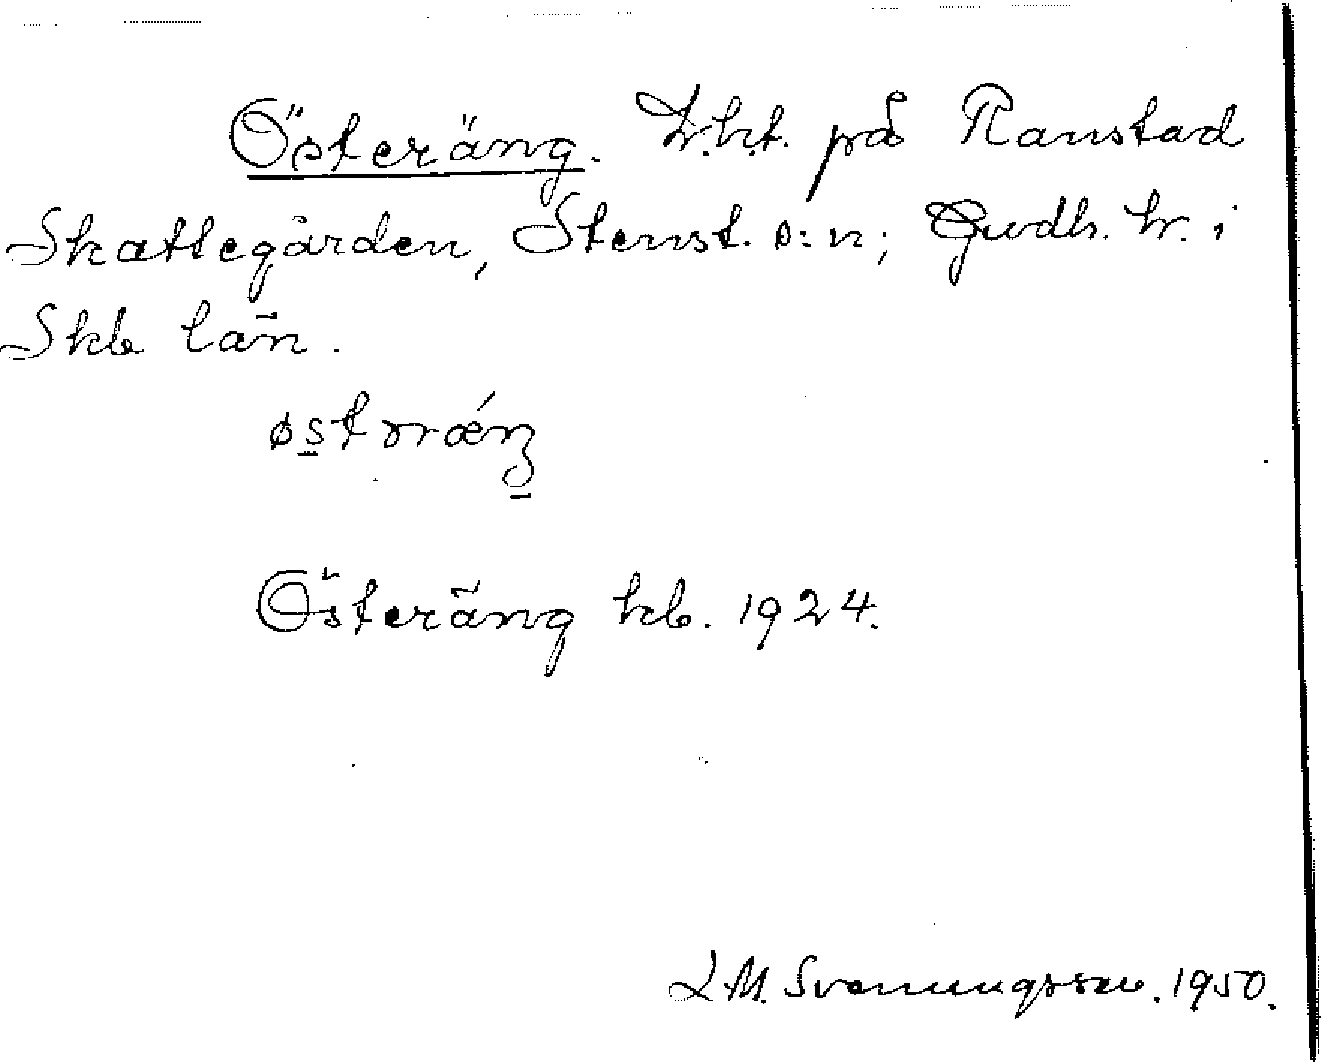 Österäng. L.h.t. på Ranstad
Skattegården, Stenst. s:n; Gudh. hr. i
Skb län.
østɤrǽŋ
Österäng kb. 1924.
L M. Svenungsson. 1950.